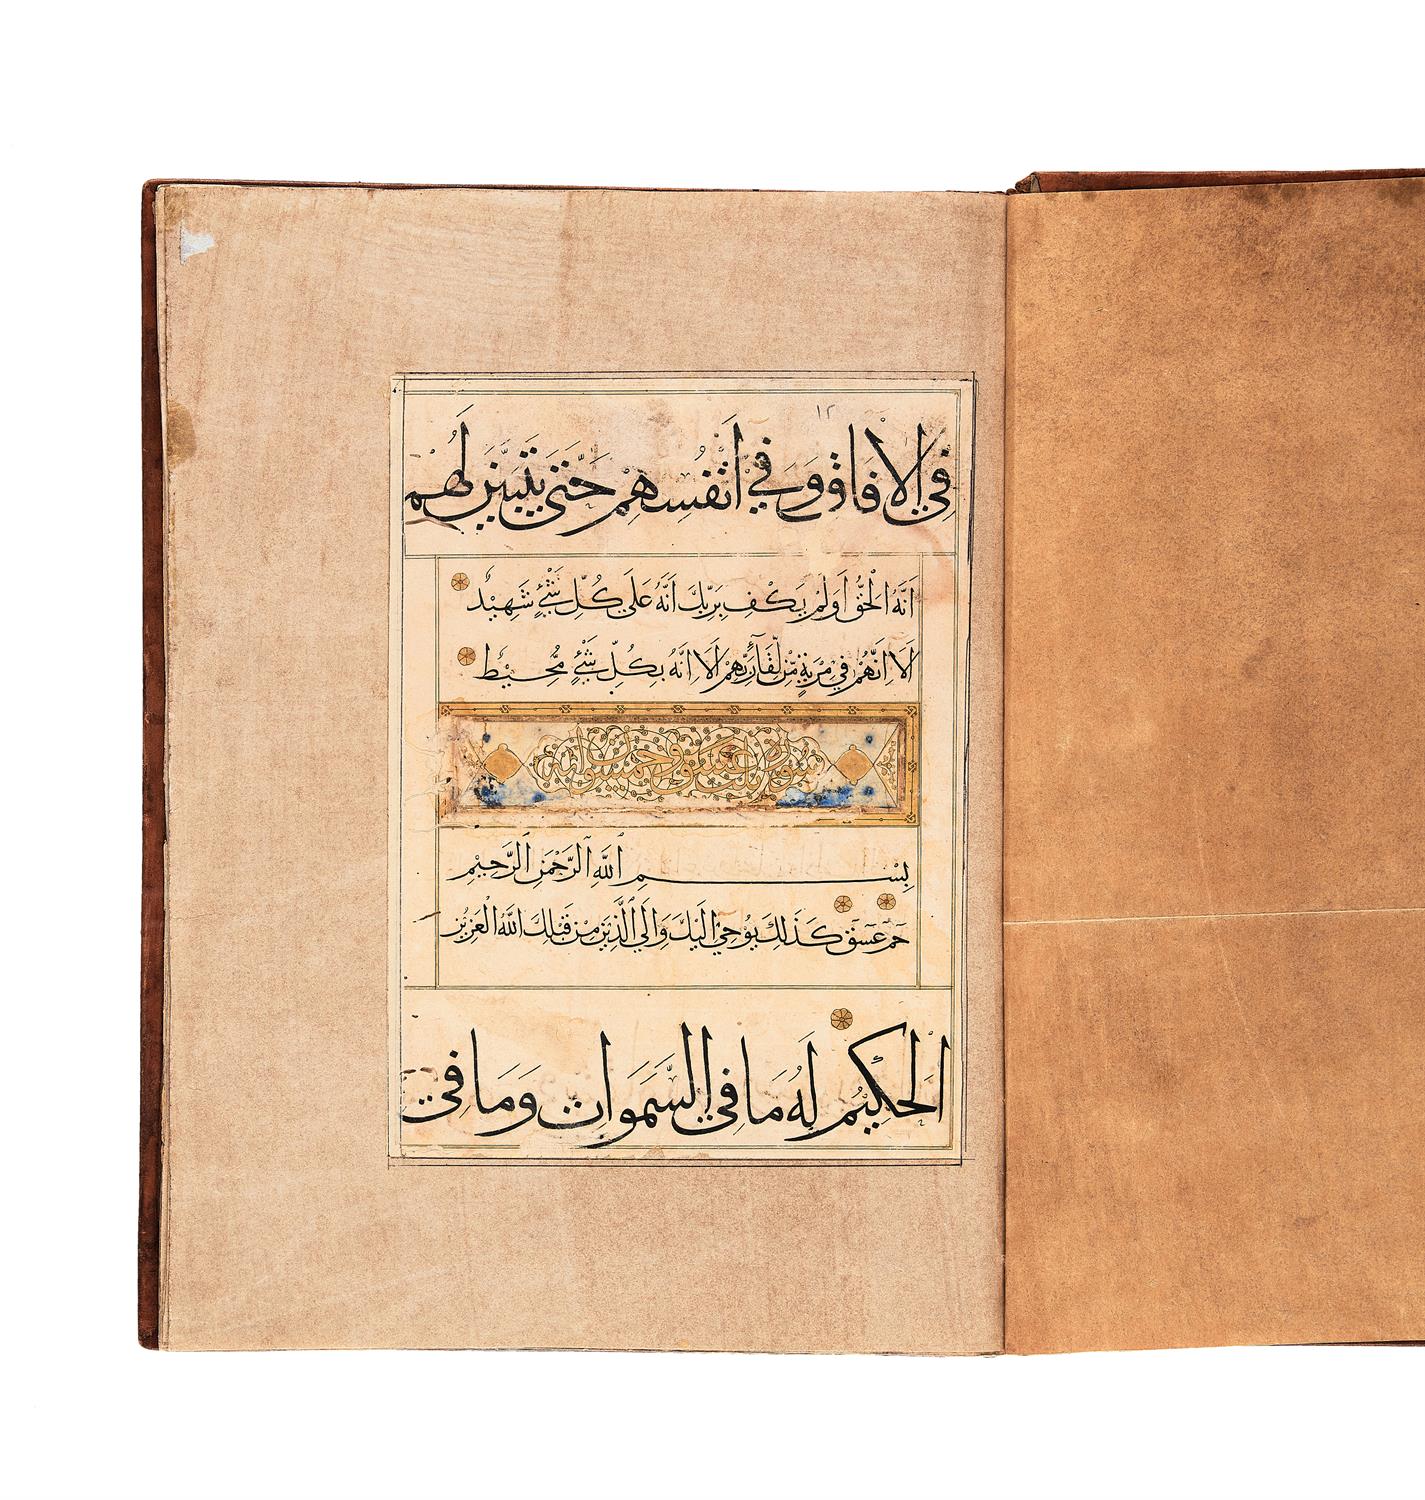 ١٢
في الافاق وفي انفسهم حتى يتبين لهم
انه الحق اولم يكف بربك انه على كل شئ شهيد
الا انهم في مرية من لقاء ربهم الا انه بكل شئ محيط
سورة عسق وخمسون اية
بسم الله الرحمن الرحيم
حم عسق كذلك يوحى اليك والى الذين من قبلك الله العزيز
الحكيم له ما في السموات وما في